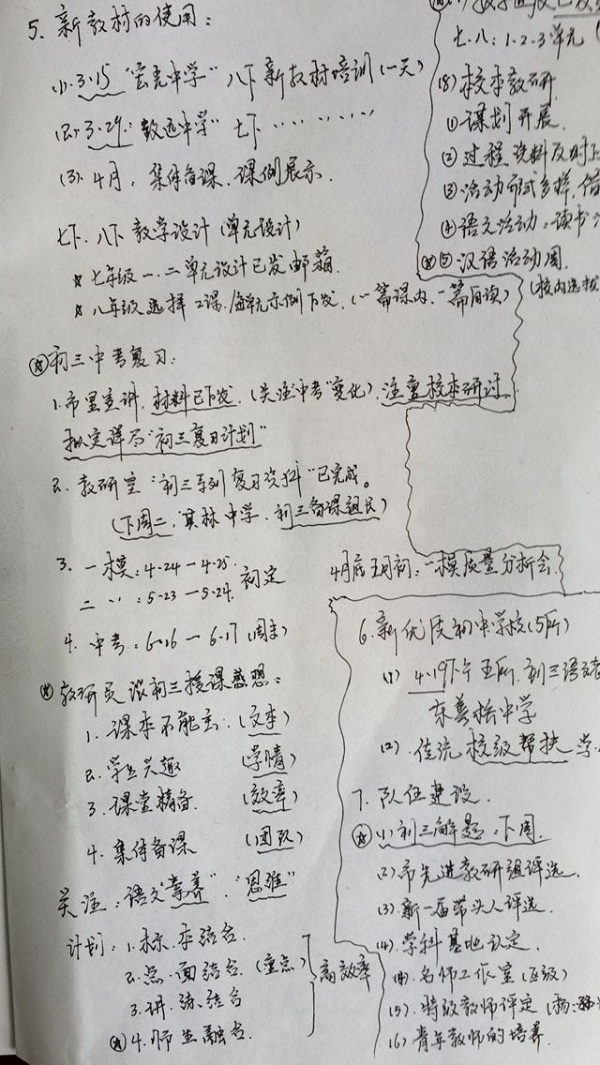 5. 新教材的使用:
(1). 3.15 "宏志中学" 八下新教材培训(一天)
(2). 3.29. "致远中学" 七下 ‥ ‥ ‥ ‥
(3). 4月, 集体备课、课例展示.
七下、八下教学设计(单元设计)
☆ 七年级一、二单元设计已发邮箱.
☆ 八年级选择2课/单元示例下发. (一篇课内、一篇自读)
初三中考复习:
1. 市里宣讲, 材料已下发. (关注"中考"变化). 注重校本研讨
拟定详尽"初三复习计划"
2. 教研室"初三系列复习资料"已完成。
(下周二, 中学. 初三备课组长)
3. 一模: 4.24 — 4.25. 初定
二 〃: 5.23 — 5.24.
4. 中考: 6.16 — 6.17 (周末)
教研员谈初三授课感想:
1. 课本不能丢: (文本)
2. 学生兴趣 (学情)
3. 课堂精备. (效率)
4. 集体备课 (团队)
关注: 语文"素养". "思维"
计划: 1. 标、本结合.
2. 点、面结合. (重点)
3. 讲、练结合
4. 师生融合.
高效率
七.八: 1.2.3单元
(8) 校本教研
① 谋划开展.
② 过程资料及时上
③ 活动形式多样,
④ 语文活动: 读书
⑤ 汉语活动周.
(校内选拔
4月底五月初: 一模质量分析会.
6. 新优质初中学校(5所)
(1) 4.19下午 五所. 初三语文
中学
(2). 校级帮扶
7. 队伍建设.
(1) 初三解题. 下周.
(2) 市先进教研组评选.
(3) 新一届带头人评选.
(4). 学科基地认定.
名师工作室(区级)
(5). 特级教师评定
(6) 青年教师的培养.